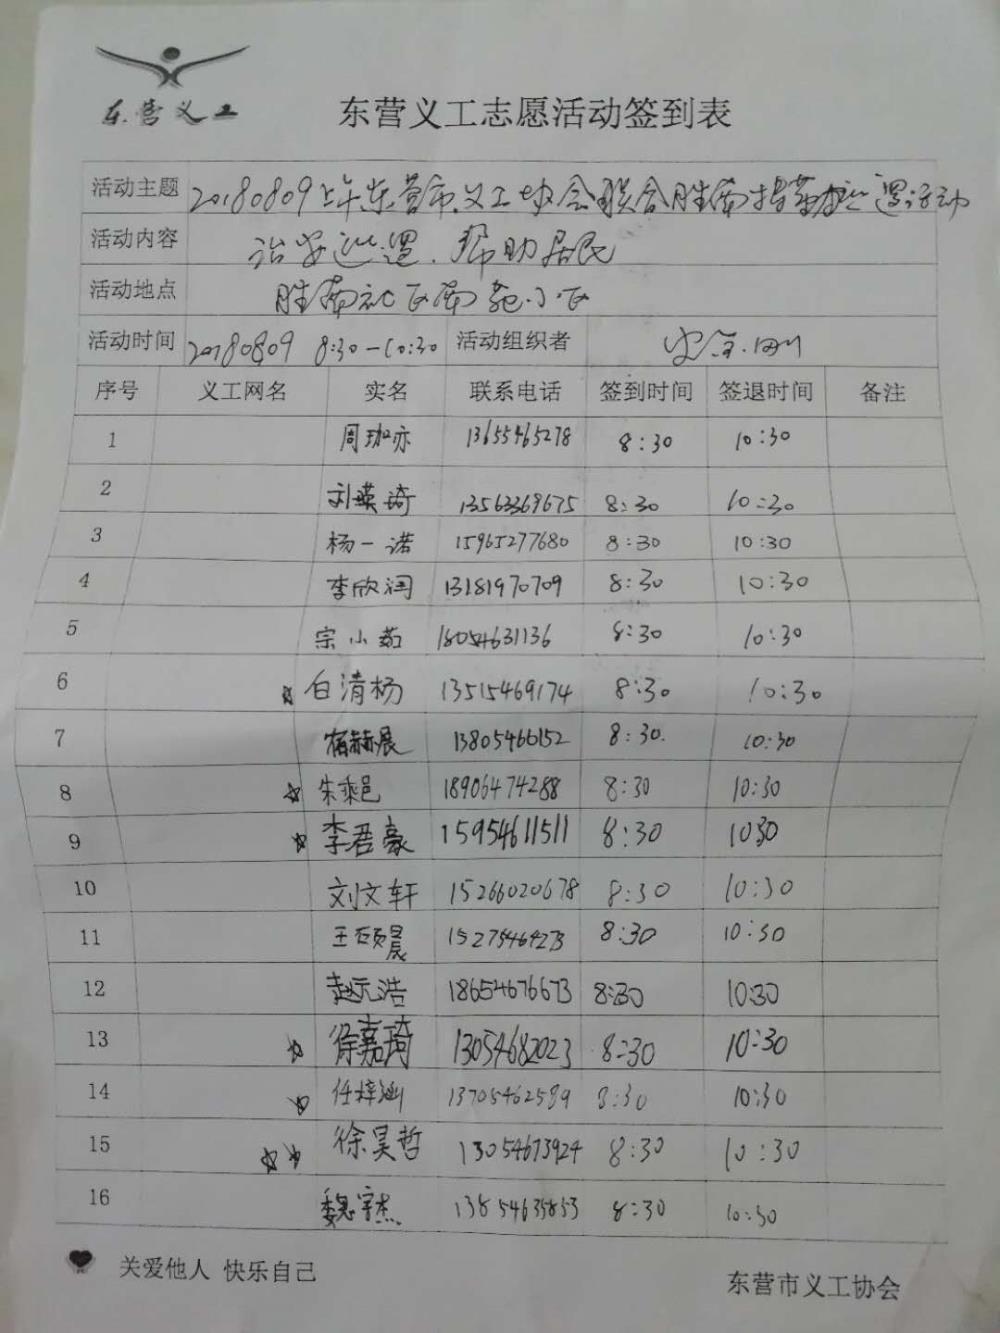 东营义工
东营义工志愿活动签到表
活动主题 20180809上午东营市义工协会联合胜南指挥部巡逻活动
活动内容 治安巡逻.帮助居民
活动地点 胜南社区南苑小区
活动时间 20180809 8:30-10:30 活动组织者
序号 义工网名 实名 联系电话 签到时间 签退时间 备注
1 周珈亦 13655465278 8:30 10:30
2 刘瑛琦 13563369675 8:30 10:30
3 杨一诺 15965277680 8:30 10:30
4 李欣润 13181970709 8:30 10:30
5 宗小茹 18054631136 8:30 10:30
6 ☆白清杨 13515469174 8:30 10:30
7 展 13805466152 8:30. 10:30
8 ☆朱乘邑 18906474288 8:30 10:30
9 ☆李君豪 15954611511 8:30 1030
10 刘文轩 15266020678 8:30 10:30
11 王硕晨 8:30 10:30
12 赵元浩 18654676673 8:30 10:30
13 ☆徐嘉琦 13054682023 8:30 10:30
14 ☆任梓涵 13705462589 8:30 10:30
15 ☆☆徐昊哲 13054673924 8:30 10:30
16 魏宇杰 13854635853 8:30 10:30
关爱他人 快乐自己
东营市义工协会